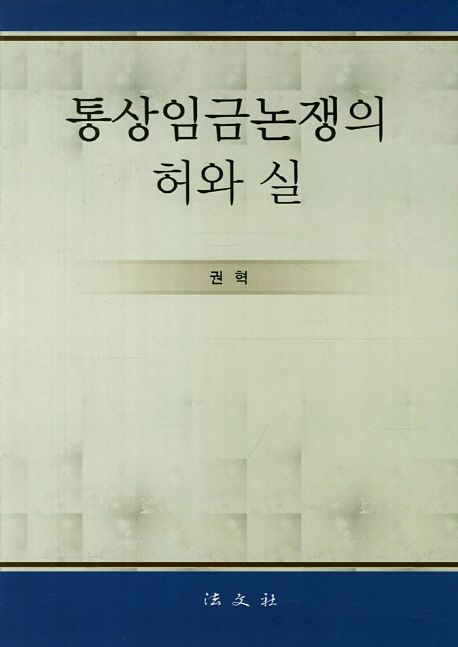 통상임금논쟁의
허와 실
권 혁
法文社